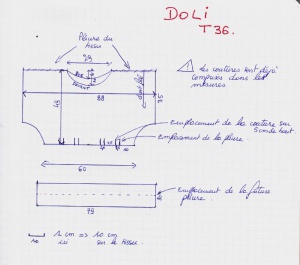 DOLI
T36.
Pliure du
tissu
29
⚠ Les coutures sont déjà
comprises dans les
mesures
88
43
35
droit fil
emplacement de la couture sur
5 cm de haut.
emplacement de la pliure.
60
emplacement de la future
pliure.
79
1 cm => 10 cm
ici sur le tissu.